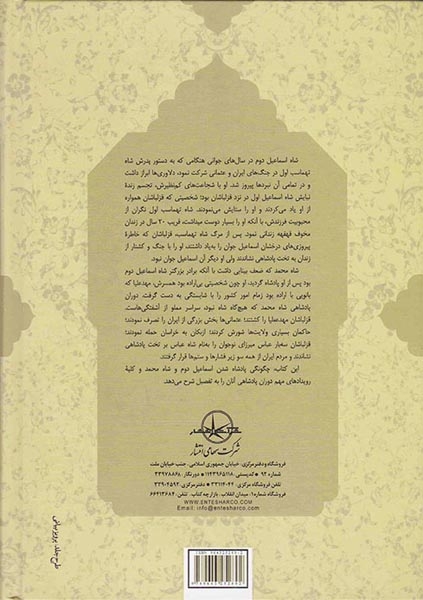 شاه اسماعیل دوم در سال‌های جوانی هنگامی که به دستور پدرش شاه
تهماسب اول در جنگ‌های ایران و عثمانی شرکت نمود، دلاوری‌ها ابراز داشت
و در تمامی آن نبردها پیروز شد. او با شجاعت‌های کم‌نظیرش، تجسم زندهٔ
نیایش شاه اسماعیل اول در نزد قزلباشان بود؛ شخصیتی که قزلباشان همواره
از او یاد می‌کردند و او را ستایش می‌نمودند. شاه تهماسب اول نگران از
محبوبیت فرزندش، با آنکه او را بسیار دوست میداشت، قریب ۲۰ سال در زندان
مخوف قهقهه زندانی نمود. پس از مرگ شاه تهماسب، قزلباشان که خاطرهٔ
پیروزی‌های درخشان اسماعیل جوان را به‌یاد داشتند، او را با جنگ و کشتار از
زندان به تخت پادشاهی نشاندند ولی او دیگر آن اسماعیل جوان نبود.
شاه محمد که ضعف بینایی داشت با آنکه برادر بزرگتر شاه اسماعیل دوم
بود پس از او پادشاه گردید. او چون شخصیتی بی‌اراده بود همسرش، مهدعلیا که
بانویی با اراده بود زمام امور کشور را با شایستگی به دست گرفت. دوران
پادشاهی شاه محمد که هیچ‌گاه شاه نبود، سراسر مملو از آشفتگی‌هاست.
قزلباشان مهدعلیا را کشتند؛ عثمانی‌ها بخش بزرگی از ایران را تصرف نمودند؛
حاکمان بسیاری ولایت‌ها شورش کردند؛ ازبکان به خراسان حمله نمودند؛
قزلباشان سه‌بار عباس میرزای نوجوان را به‌نام شاه عباس بر تخت پادشاهی
نشاندند و مردم ایران از همه سو زیر فشارها و ستم‌ها قرار گرفتند.
این کتاب، چگونگی پادشاه شدن اسماعیل دوم و شاه محمد و کلیهٔ
رویدادهای مهم دوران پادشاهی آنان را به تفصیل شرح می‌دهد.
شرکت سهامی انتشار
فروشگاه و دفتر مرکزی: خیابان جمهوری اسلامی، جنب خیابان ملت
شماره ۹۲ • کدپستی: ۱۱۴۳۹۶۵۱۱۸ • دورنگار: ۳۳۹۷۸۸۶۸
تلفن فروشگاه مرکزی: ۳۳۱۱۴۰۴۴ • دفتر مرکزی: ۳۳۹۰۴۵۹۲
فروشگاه شماره ۱: میدان انقلاب - بازارچه کتاب - تلفن: ۶۶۴۱۳۶۸۴
WWW.ENTESHARCO.COM
Email: info@entesharco.com
طرح جلد: پرویز بیانی